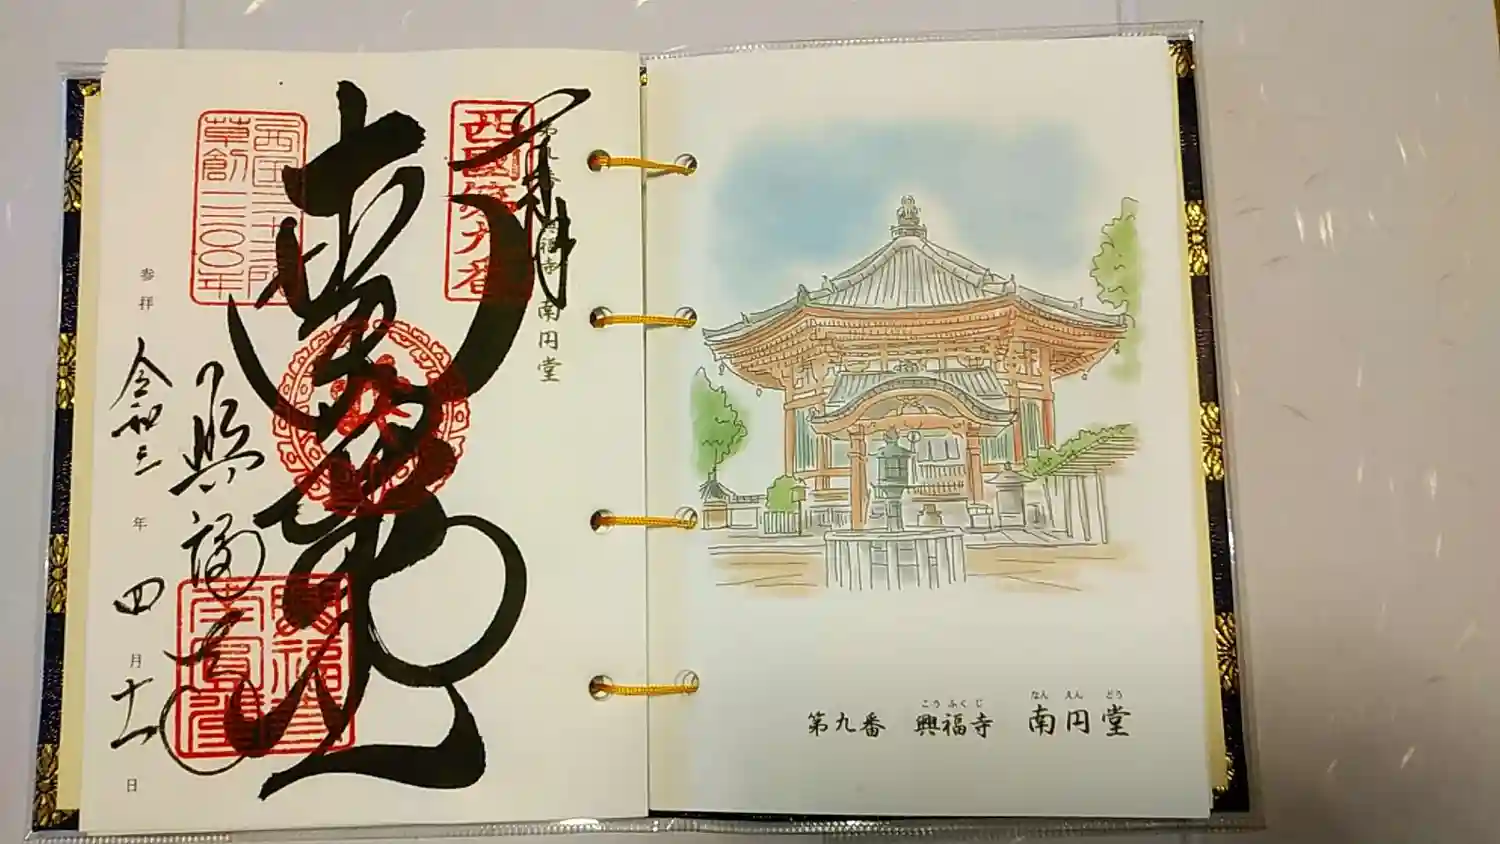 奉拝
第九番 興福寺 南円堂
西國第九番
西国三十三所
草創一三〇〇年
興福寺
参拝 令和三年 四月十一日
こうふくじ なんえんどう
第九番 興福寺 南円堂